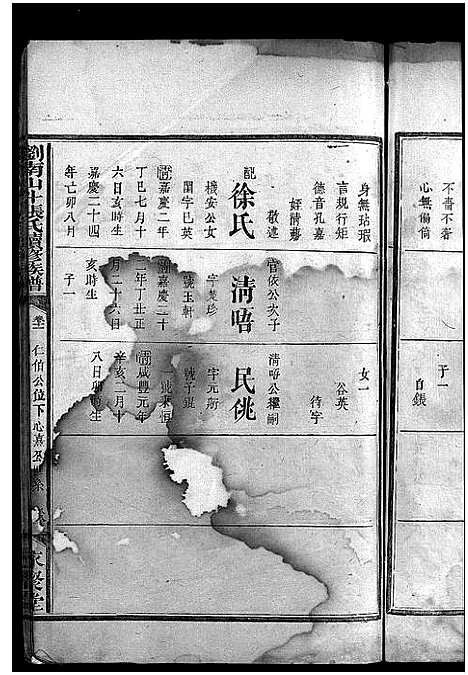 不嗇不吝
心無偏倚
子一
自鋹
身無玷瑕
言規行矩
德音孔嘉
好清藝
敬述
配徐氏
機安公女
閨字巳英
清嘉慶二年
丁巳七月十
六日亥時生
嘉慶二十四
年亡卯八月
官依公次子
清唔
字楚珍
號玉軒
清嘉慶二十
二年丁丑正
月二十六日
亥時生
子一
女一
谷英
待字
清唔公繼嗣
民佻
字元
清咸豐元年
辛亥二月十
八日卯時生
劉南山牛張氏續修族譜
卷二
仁伯公位下心嘉公